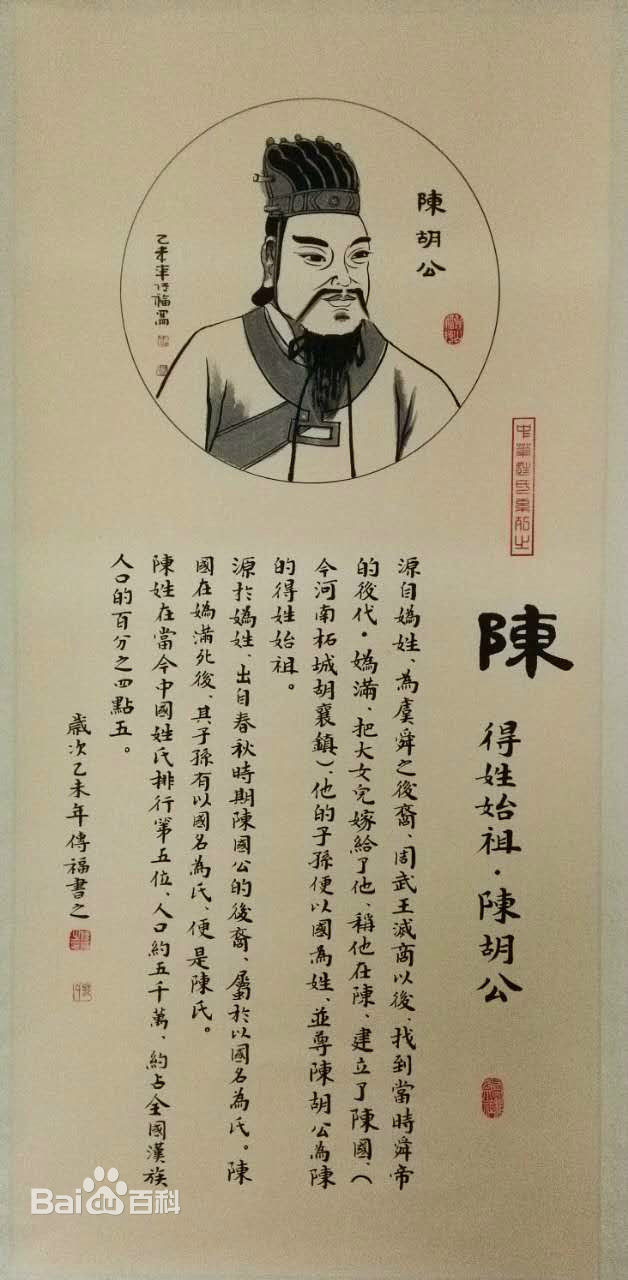 陳胡公
乙未年傳福寫
陳
得姓始祖·陳胡公
源自媯姓、為虞舜之後裔、周武王滅商以後、找到當時舜帝
的後代·媯滿、把大女兒嫁給了他、稱他在陳、建立了陳國、(
今河南柘城胡襄鎮)、他的子孫便以國為姓、並尊陳胡公為陳
的得姓始祖。
源於媯姓、出自春秋時期陳國公的後裔、屬於以國名為氏。陳
國在媯滿死後、其子孫有以國名為氏、便是陳氏。
陳姓在當今中國姓氏排行第五位、人口約五千萬、約占全國漢族
人口的百分之四點五。
歲次乙未年傳福書之
Baidu百科